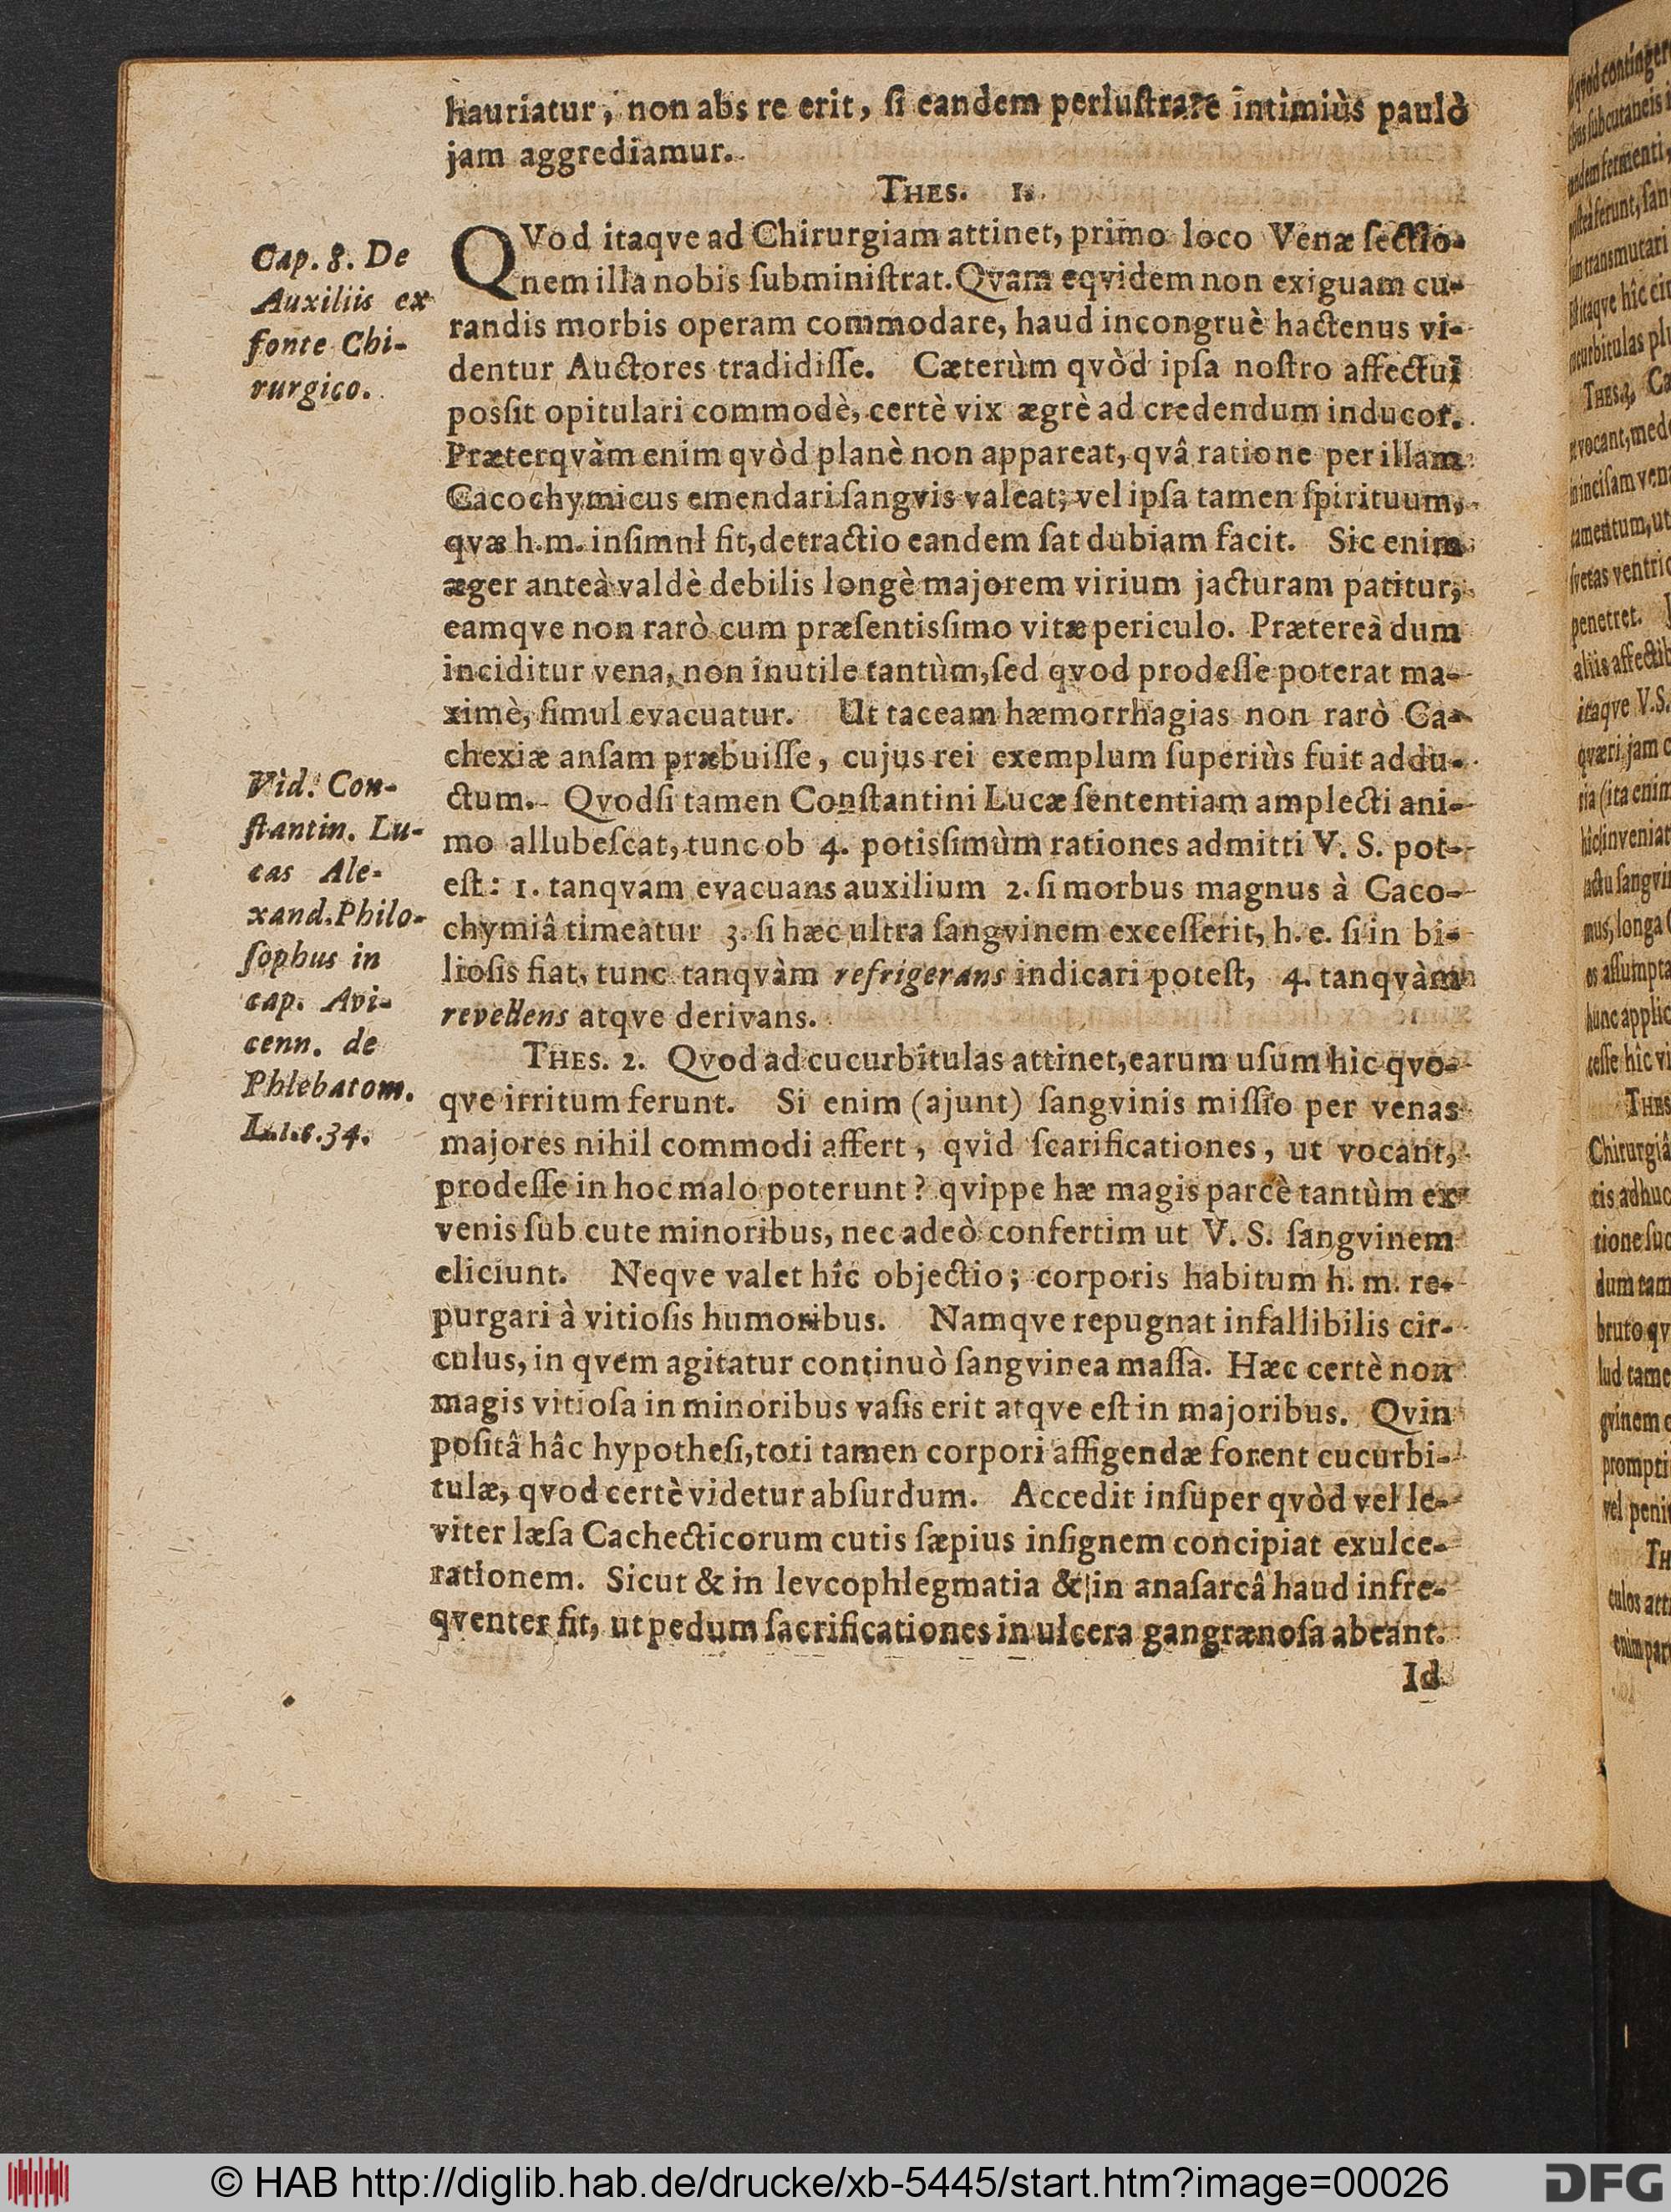 hauriatur, non abs re erit, ſi eandem perluſtrare intimiùs paulò
jam aggrediamur.
THES. I.
Cap. 8. De
Auxiliis ex
fonte Chi-
rurgico.
QVod itaqve ad Chirurgiam attinet, primo loco Venæ ſectio-
nem illa nobis ſubminiſtrat. Qvam eqvidem non exiguam cu-
randis morbis operam commodare, haud incongruè hactenus vi-
dentur Auctores tradidiſſe. Cæterùm qvòd ipſa noſtro affectui
posſit opitulari commodè, certè vix ægrè ad credendum inducor.
Præterqvàm enim qvòd planè non appareat, qvâ ratione per illam
Cacochymicus emendari ſangvis valeat; vel ipſa tamen ſpirituum,
qvæ h.m. inſimnl fit, detractio eandem ſat dubiam facit. Sic enim
æger anteà valdè debilis longè majorem virium jacturam patitur,
eamqve non rarò cum præſentisſimo vitæ periculo. Prætereà dum
inciditur vena, non inutile tantùm, ſed qvod prodeſſe poterat ma-
ximè, ſimul evacuatur. Ut taceam hæmorrhagias non rarò Ca-
chexiæ anſam præbuiſſe, cujus rei exemplum ſuperiùs fuit addu-
ctum. Qvodſi tamen Conſtantini Lucæ ſententiam amplecti ani-
mo allubeſcat, tunc ob 4. potisſimùm rationes admitti V. S. pot-
eſt: 1. tanqvam evacuans auxilium 2. ſi morbus magnus à Caco-
chymiâ timeatur 3. ſi hæc ultra ſangvinem exceſſerit, h. e. ſi in bi-
lioſis fiat, tunc tanqvàm refrigerans indicari poteſt, 4. tanqvàm
revellens atqve derivans.
Vid. Con-
ſtantin. Lu-
cas Ale-
xand. Philo-
ſophus in
cap. Avi-
cenn. de
Phlebatom.
L. 1. c. 34.
THES. 2. Qvod ad cucurbitulas attinet, earum uſum hic qvo-
qve irritum ferunt. Si enim (ajunt) ſangvinis miſſio per venas
majores nihil commodi affert, qvid ſcarificationes, ut vocant,
prodeſſe in hoc malo poterunt? qvippe hæ magis parcè tantùm ex
venis ſub cute minoribus, nec adeò confertim ut V. S. ſangvinem
eliciunt. Neqve valet hîc objectio; corporis habitum h. m. re-
purgari à vitioſis humoribus. Namqve repugnat infallibilis cir-
culus, in qvem agitatur continuò ſangvinea maſſa. Hæc certè non
magis vitioſa in minoribus vaſis erit atqve eſt in majoribus. Qvin
poſitâ hâc hypotheſi, toti tamen corpori affigendæ forent cucurbi-
tulæ, qvod certè videtur abſurdum. Accedit inſuper qvòd vel le-
viter læſa Cachecticorum cutis ſæpius inſignem concipiat exulce-
rationem. Sicut & in levcophlegmatia & in anaſarcâ haud infre-
qventer fit, ut pedum ſacrificationes in ulcera gangrænoſa abeant.
Id
© HAB http://diglib.hab.de/drucke/xb-5445/start.htm?image=00026
DFG